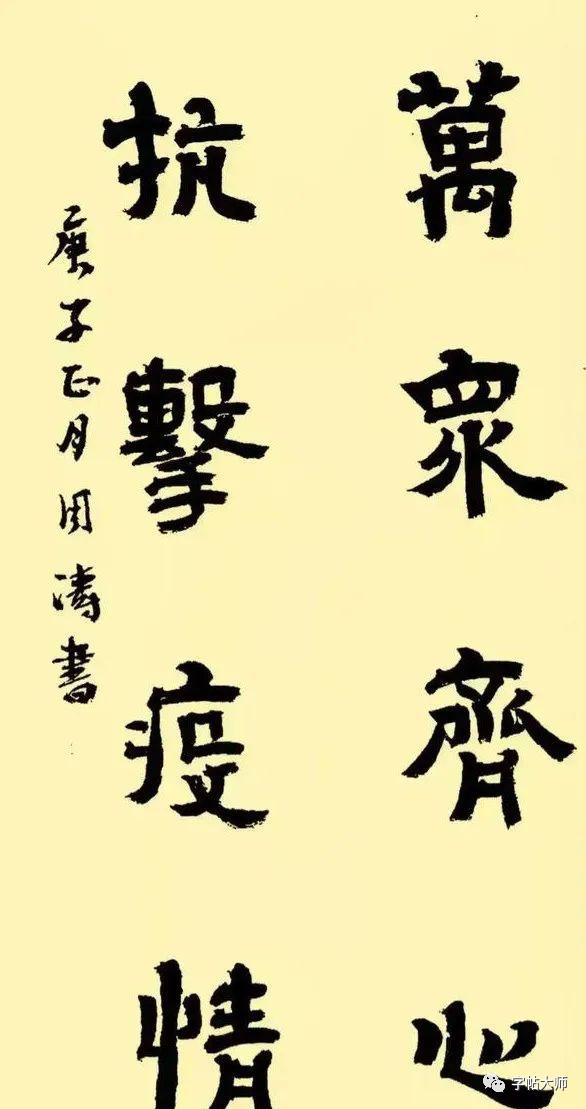 萬眾齊心
抗擊疫情
庚子正月周濤書
字帖大师